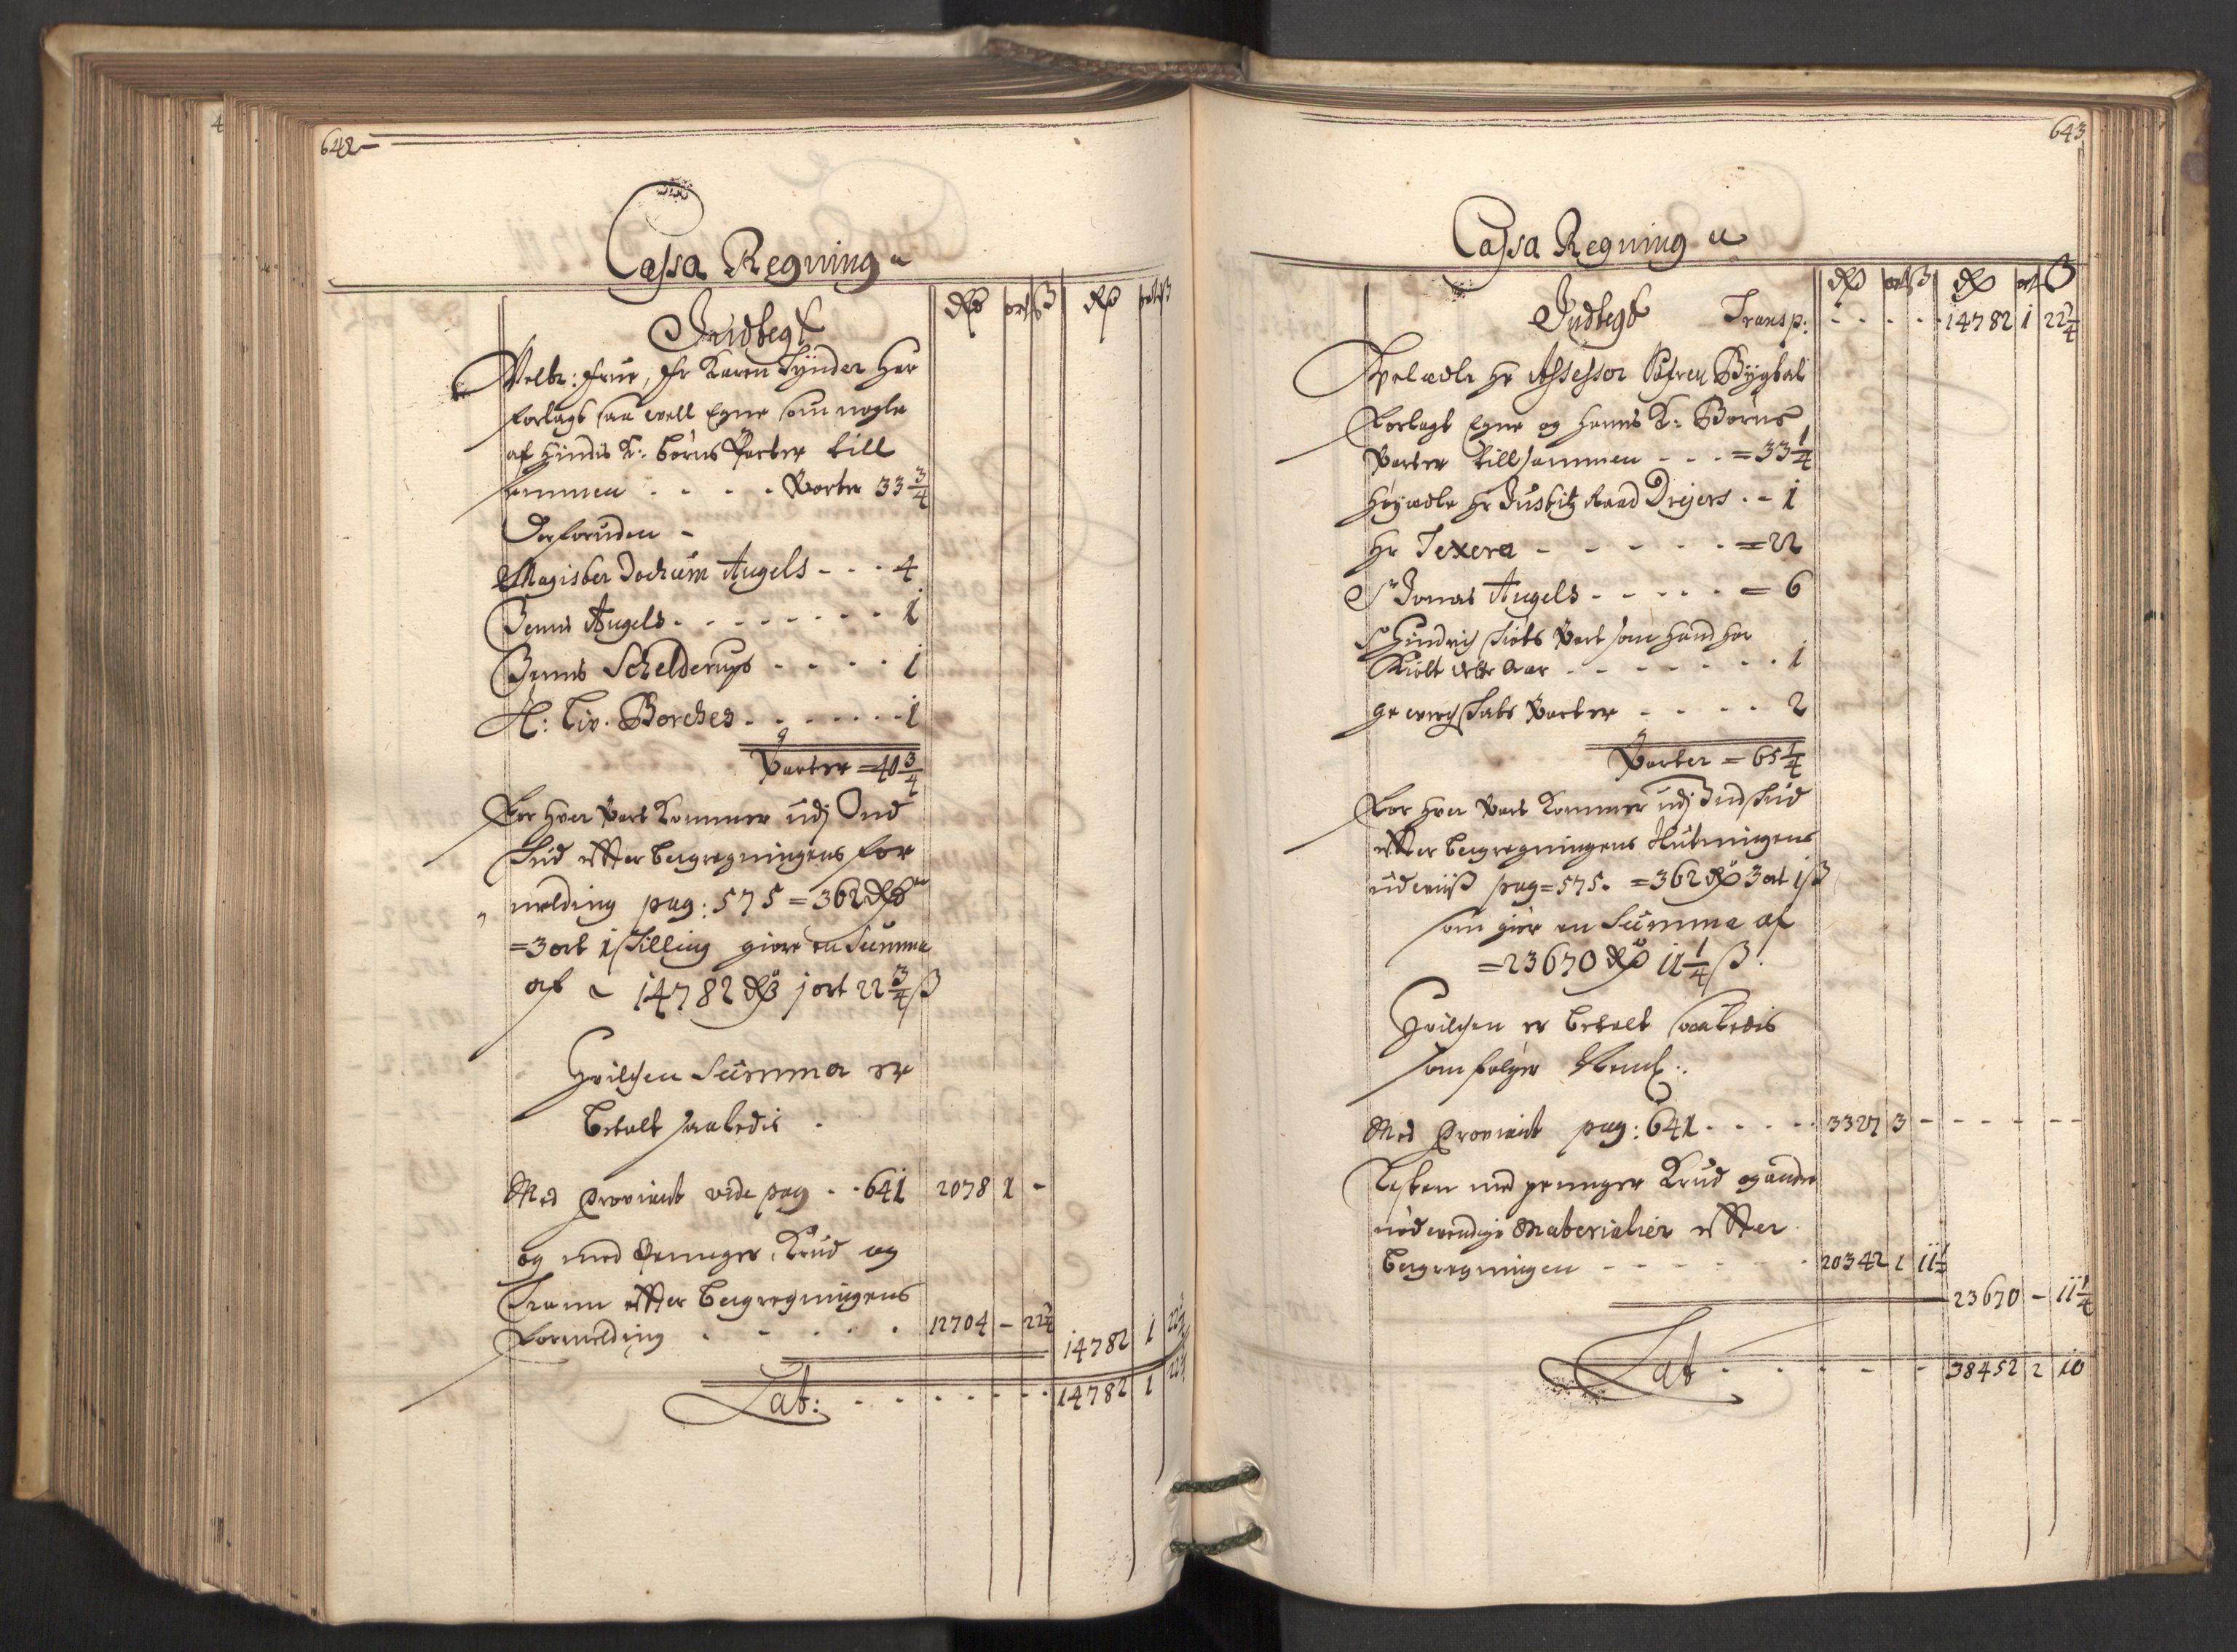 642
Cassa Regning
Rdr ort ß Rdr ort ß
Indtegt
Velb: Frue, Fr Karen Tynder har
forlagt saa well Egne som nogle
af hindis K: börns Parter till
sammen . . . . Parter 33 3/4
Desforuden -
Magister Jochum Angels - - - 4
Jenns Angels . - - - - - - - 1
Jenns Schelderups - - - - 1
H: Liv. Borches . - - - - - - 1
Parter = 40 3/4
For hver Part kommer udj Ind
skud effter bergregningens for
melding pag: 575 = 362 Rdr
= 3 ort 1 skilling giøre en Summa
af ~ 14782 Rdr 1 ort 22 3/4 ß
Hvilchen Summa er
betalt saaledis .
Med Proviant vide pag - - 641 2078 1 -
og med Penninger, Krud og
Trann effter bergregningens
formelding . - - - - . 12704 - 22 3/4 14782 1 22 3/4
Lat: . - - - - - - - 14782 1 22 3/4
643
Cassa Regning
Rdr ort ß Rdr ort ß
Indtegt Transp: - - - - - 14782 1 22 3/4
Velædle Hr Assessor Søfren Bygbal
forlagt Egne og hanns K: Börns
Parter till sammen - - - = 33 1/4
Høyædle Hr Justitz Raad Dreyers . - 1
Hr Texera - - - - - - = 22
Sr Jonas Angels - - - - - = 6
Sr Hindrich Part som hand har
Kiøbt dette Aar - - - - - - - 1
Parter - - - - 2
Parter = 65 1/4
For hver Part kommer udj Indskud
effter bergregningens Slutningens
udviiß pag = 575. = 362 Rdr 3 ort 1 ß
som giør en Summa af
= 23670 Rdr 11 1/4 ß.
Hvilchen er betalt saaledis
som følger Neml:
Med Proviant pag: 641 . - - - - 3327 3 - - - - - -
Resten med penninger Krud og andre
nødvendige Materialier effter
bergregningen - - - - - - 20342 1 11 1/4
23670 - 11 1/4
Lat - - - - - 38452 2 10